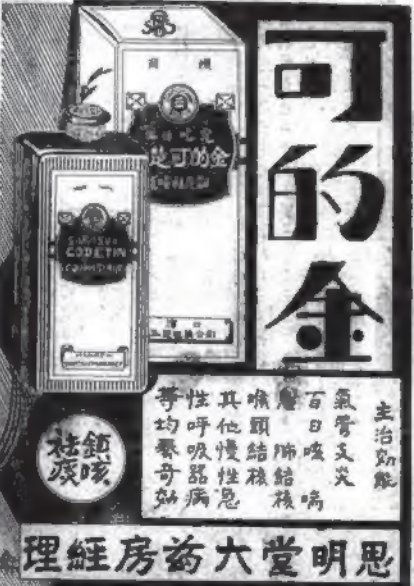 可的金
金的可
CODETIN
主治効能
氣管支炎
百日咳 喘
息 肺結核
喉頭結核
其他慢性急
性呼吸器病
等均奏奇効
鎮咳
祛痰
思明堂大葯房經理